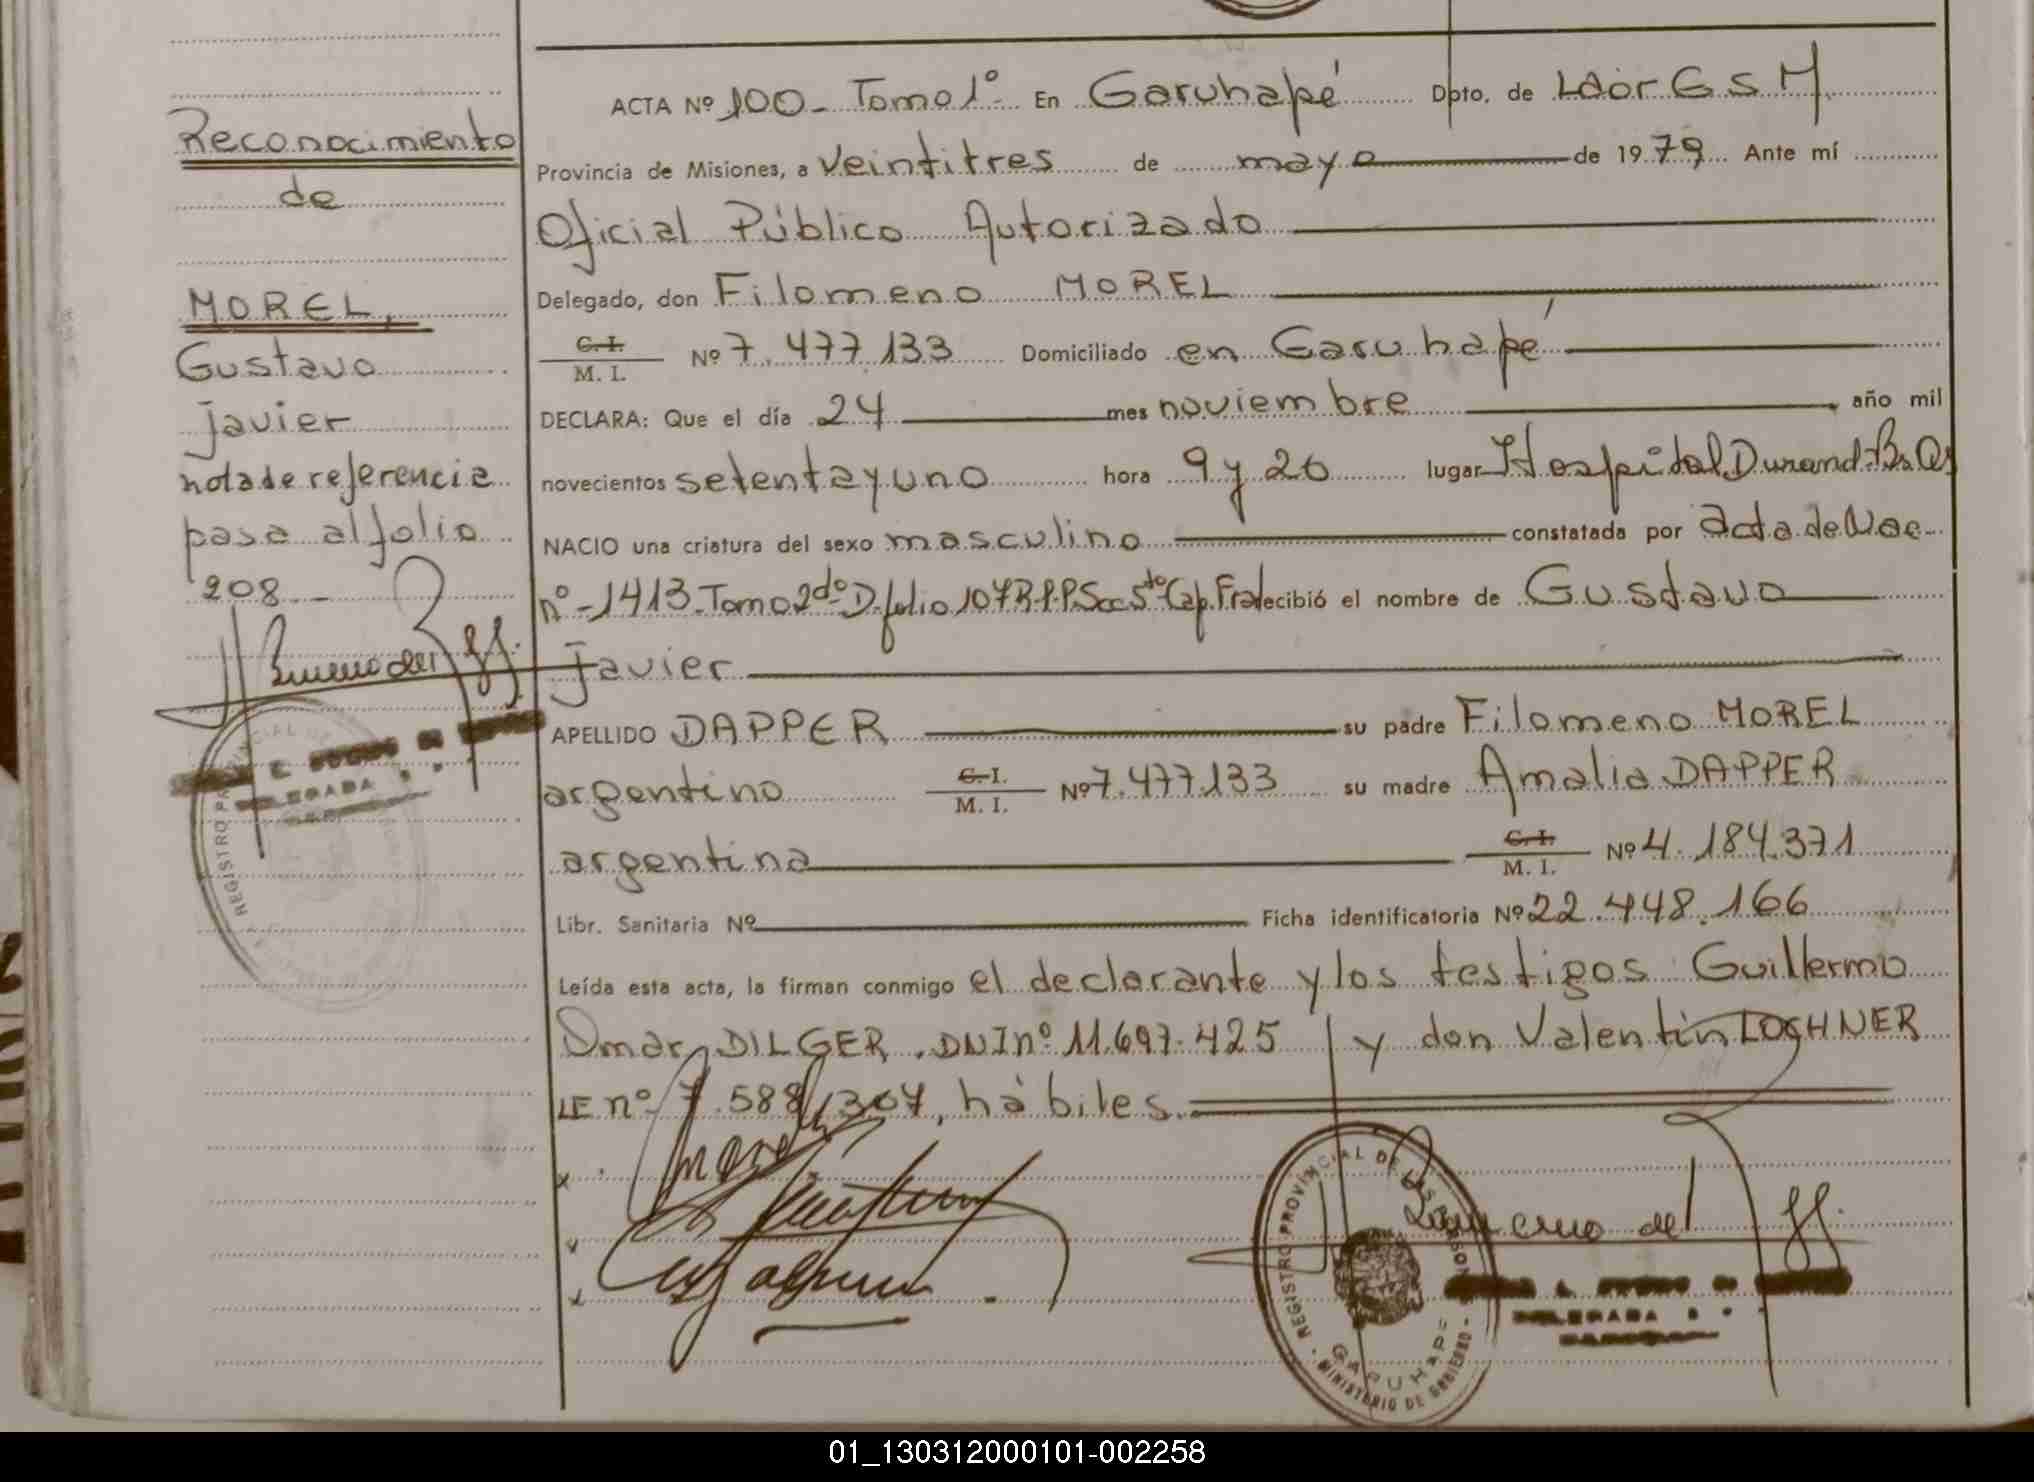 Reconocimiento
de
MOREL,
Gustavo
Javier
nota de referencia
pasa al folio
208 -
ACTA Nº 100 - Tomo 1º En Garuhapé Dpto. de Ldor G S M
Provincia de Misiones, a veintitres de mayo de 1979 Ante mí
Oficial Público Autorizado
Delegado, don Filomeno MOREL
C. I. / M. I. Nº 7.477.133 Domiciliado en Garuhapé
DECLARA: Que el día 24 mes noviembre, año mil
novecientos setenta y uno hora 9 y 20 lugar Hospital Durand. Bs. As
NACIO una criatura del sexo masculino constatada por acta de Nac
nº - 1413. Tomo 2do D. folio 107 Secc 5to Cap. Fral recibió el nombre de Gustavo
Javier
APELLIDO DAPPER su padre Filomeno MOREL
argentino C. I. / M. I. Nº 7.477.133 su madre Amalia DAPPER
argentina C. I. / M. I. Nº 4.184.371
Libr. Sanitaria Nº Ficha identificatoria Nº 22.448.166
Leída esta acta, la firman conmigo el declarante y los testigos Guillermo
Omar DILGER. DNI nº 11.697.425 y don Valentin LOCHNER
LE nº 7.588.307, hábiles.
REGISTRO PROVINCIAL DE LAS PERSONAS
GARUHAPE
MINISTERIO DE GOBIERNO
DELEGADA
01_130312000101-002258